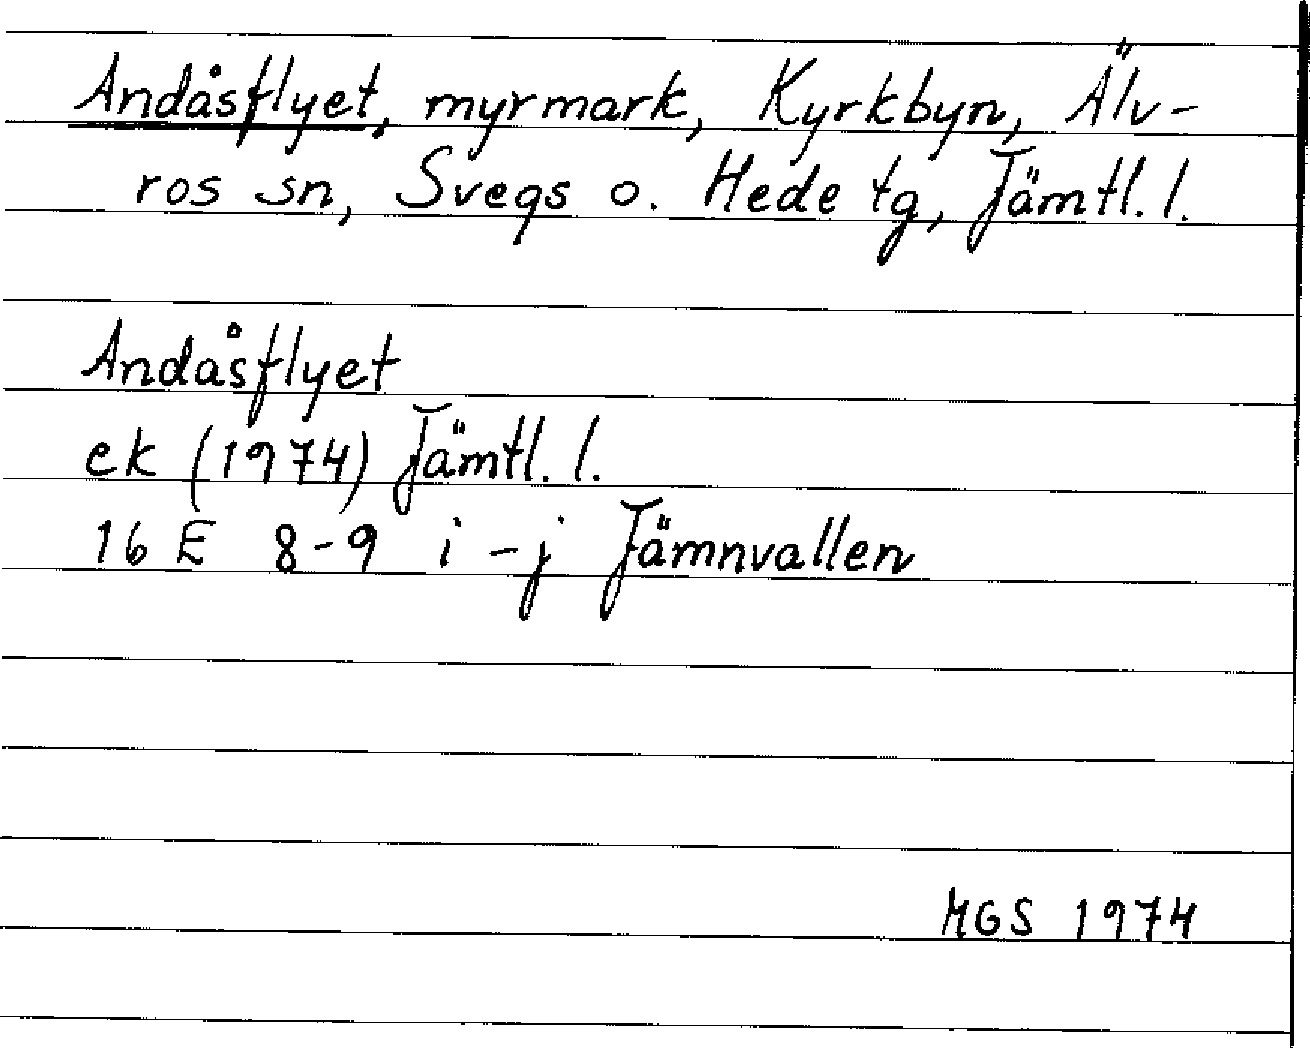 Andåsflyet, myrmark, Kyrkbyn, Älv-
ros sn, Svegs o. Hede tg, Jämtl. l.
Andåsflyet
ek (1974) Jämtl. l.
16 E 8-9 i-j Jämnvallen
MGS 1974